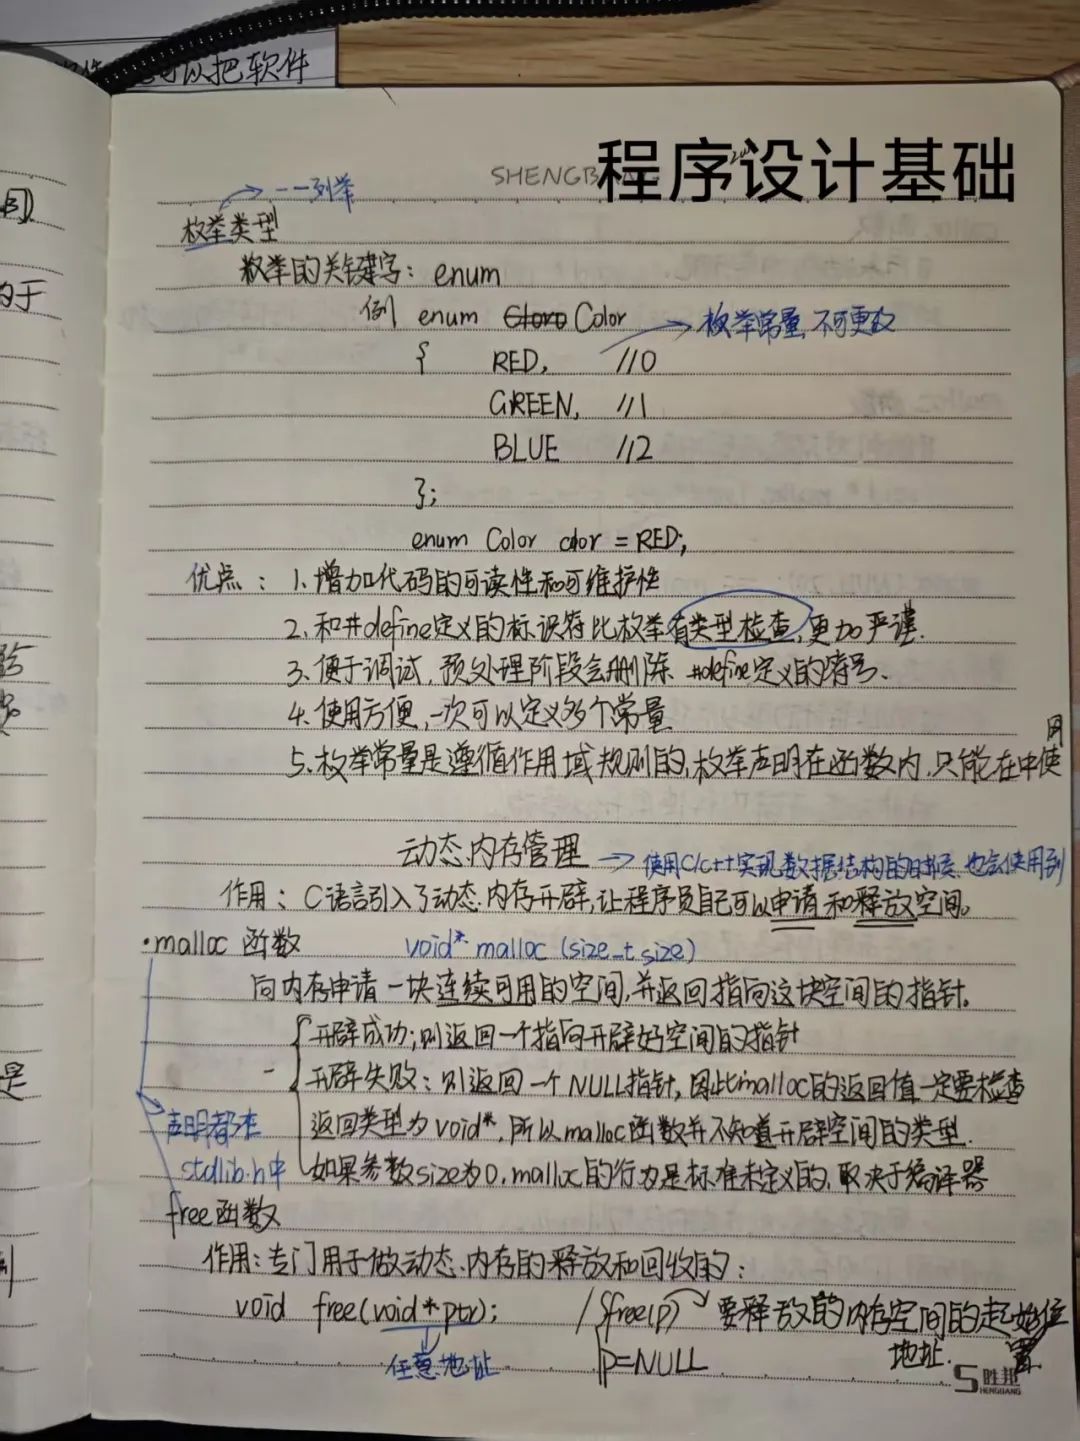 以把软件
程序设计基础
SHENGB
一一列举
枚举类型
枚举的关键字：enum
例 enum Color
→ 枚举常量，不可更改
{ RED, //0
GREEN, //1
BLUE //2
};
enum Color color = RED;
优点：1、增加代码的可读性和可维护性
2、和#define定义的标识符比枚举有类型检查，更加严谨.
3、便于调试，预处理阶段会删除 #define定义的符号、
4、使用方便，一次可以定义多个常量
5、枚举常量是遵循作用域规则的，枚举声明在函数内，只能在中使用
动态内存管理 → 使用C/C++实现数据结构的时候 也会使用到
作用：C语言引入了动态内存开辟，让程序员自己可以申请和释放空间。
·malloc 函数 void* malloc (size_t size)
向内存申请一块连续可用的空间，并返回指向这块空间的指针。
开辟成功；则返回一个指向开辟好空间的指针
- 开辟失败：则返回一个NULL指针，因此malloc的返回值一定要检查
声明都在 返回类型为void*，所以malloc函数并不知道开辟空间的类型.
stdlib.h中 如果参数size为0，malloc的行为是标准未定义的，取决于编译器
free函数
作用：专门用于做动态内存的释放和回收的：
void free(void* ptr); free(p) 要释放的内存空间的起始位置
任意地址 p=NULL 地址.
胜邦
SHENGBANG